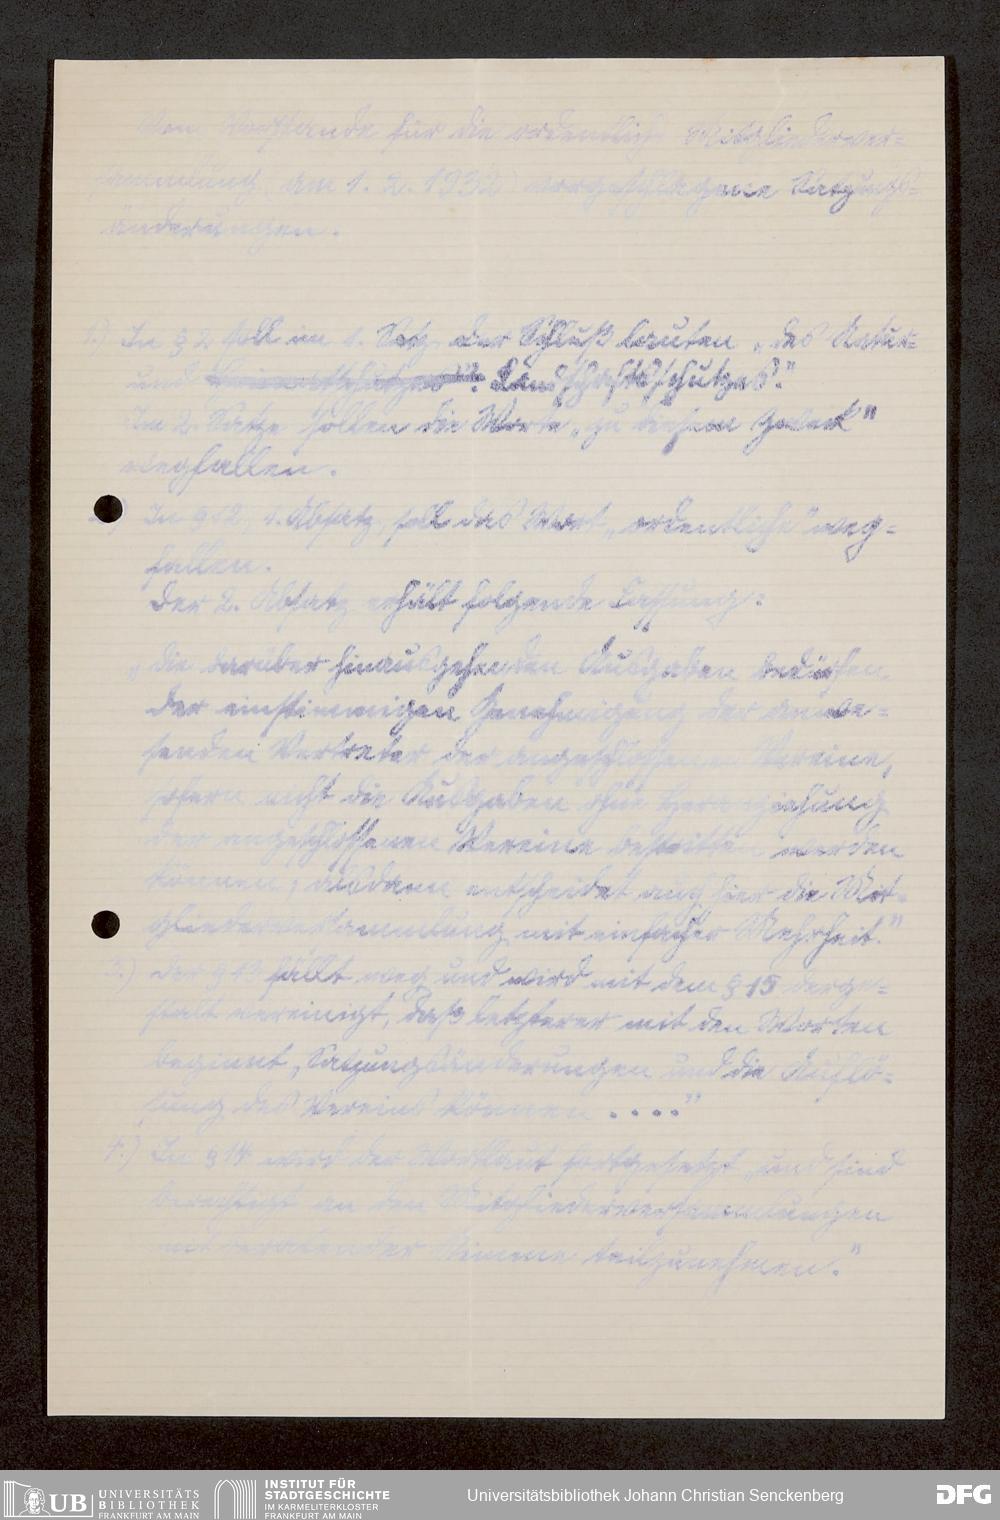 Vom Vorstande für die ordentliche Mitgliederver=
sammlung am 1. 2. 1932 vorgeschlagene Satzungs=
änderungen.
1.) In § 2 soll im 1. Satz der Schluß lauten „des Natur=
und Landschaftsschutzes."
Im 2. Satze sollen die Worte „zu diesem Zweck"
wegfallen.
In § 12, 1. Absatz, soll das Wort „ordentliche" weg=
fallen.
Der 2. Absatz erhält folgende Fassung:
„die darüber hinausgehenden Ausgaben bedürfen
der einstimmigen Genehmigung der anwe=
senden Vertreter der angeschlossenen Vereine,
sofern nicht die Ausgaben ohne Heranziehung
der angeschlossenen Vereine bestritten werden
können; alsdann entscheidet auch hier die Mit=
gliederversammlung mit einfacher Mehrheit."
3.) Der § 13 fällt weg und wird mit dem § 15 derge=
stalt vereinigt, daß letzterer mit den Worten
beginnt „Satzungsänderungen und die Auflö=
sung des Vereins können . . . ."
4.) In § 14 wird der Wortlaut fortgesetzt „und sind
berechtigt an den Mitgliederversammlungen
mit beratender Stimme teilzunehmen."
UB UNIVERSITÄTS
BIBLIOTHEK
FRANKFURT AM MAIN
INSTITUT FÜR
STADTGESCHICHTE
IM KARMELITERKLOSTER
FRANKFURT AM MAIN
Universitätsbibliothek Johann Christian Senckenberg
DFG